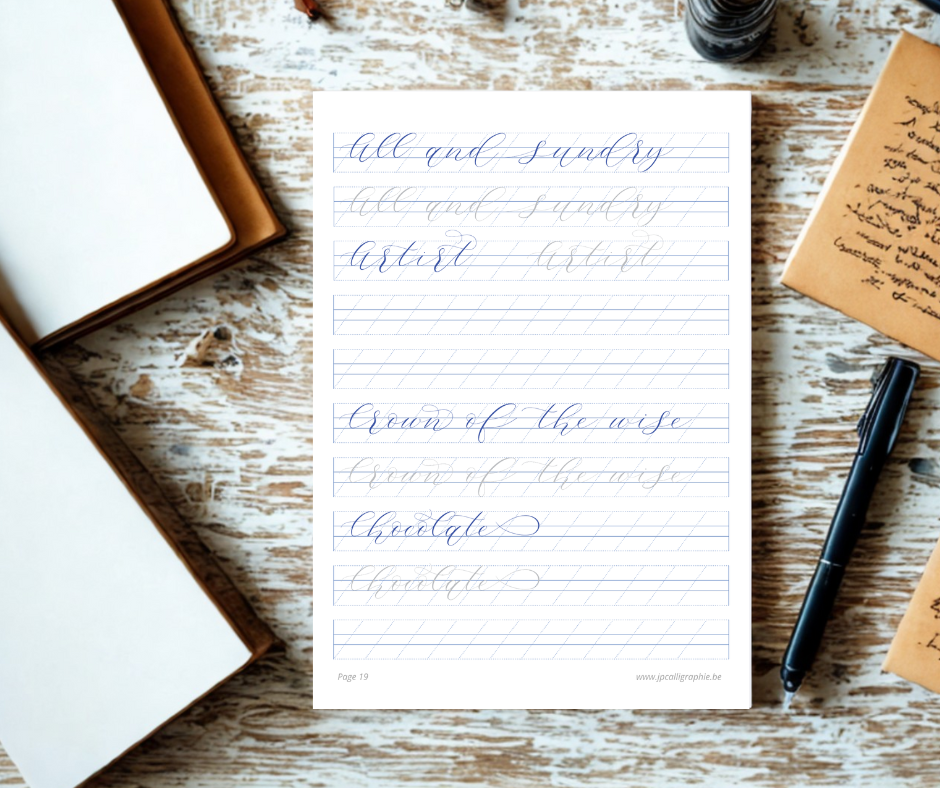 All and sundry
All and sundry
Artist Artist
Crown of the wise
Crown of the wise
Chocolate
Chocolate
Page 19 www.jpcalligraphie.be